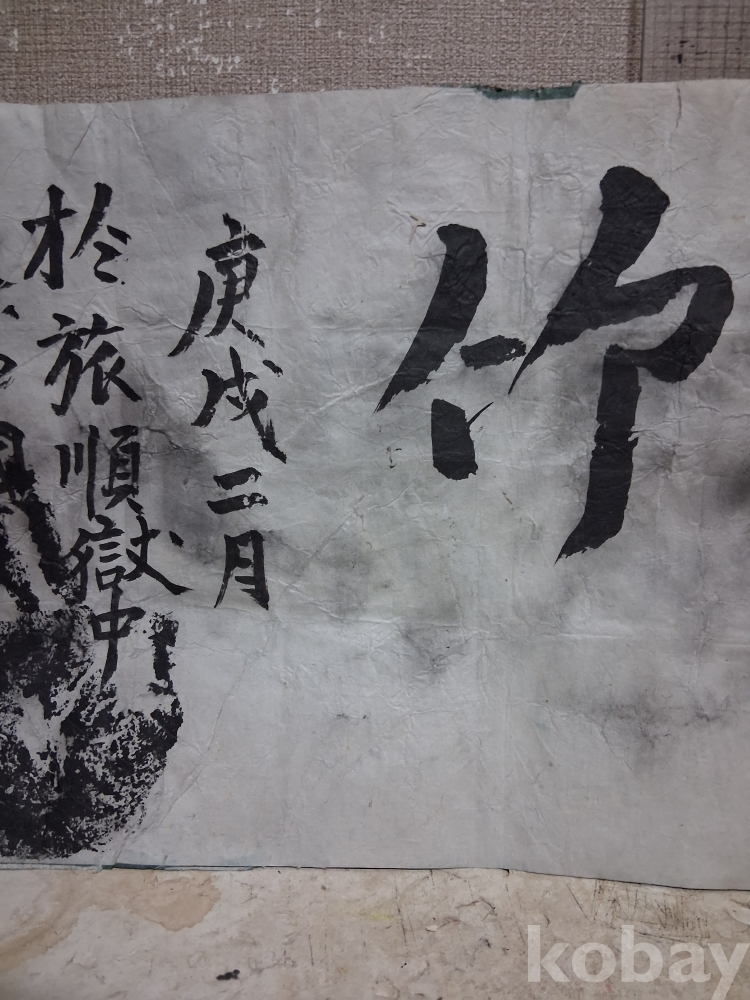 竹
庚戌二月
於旅順獄中
kobay